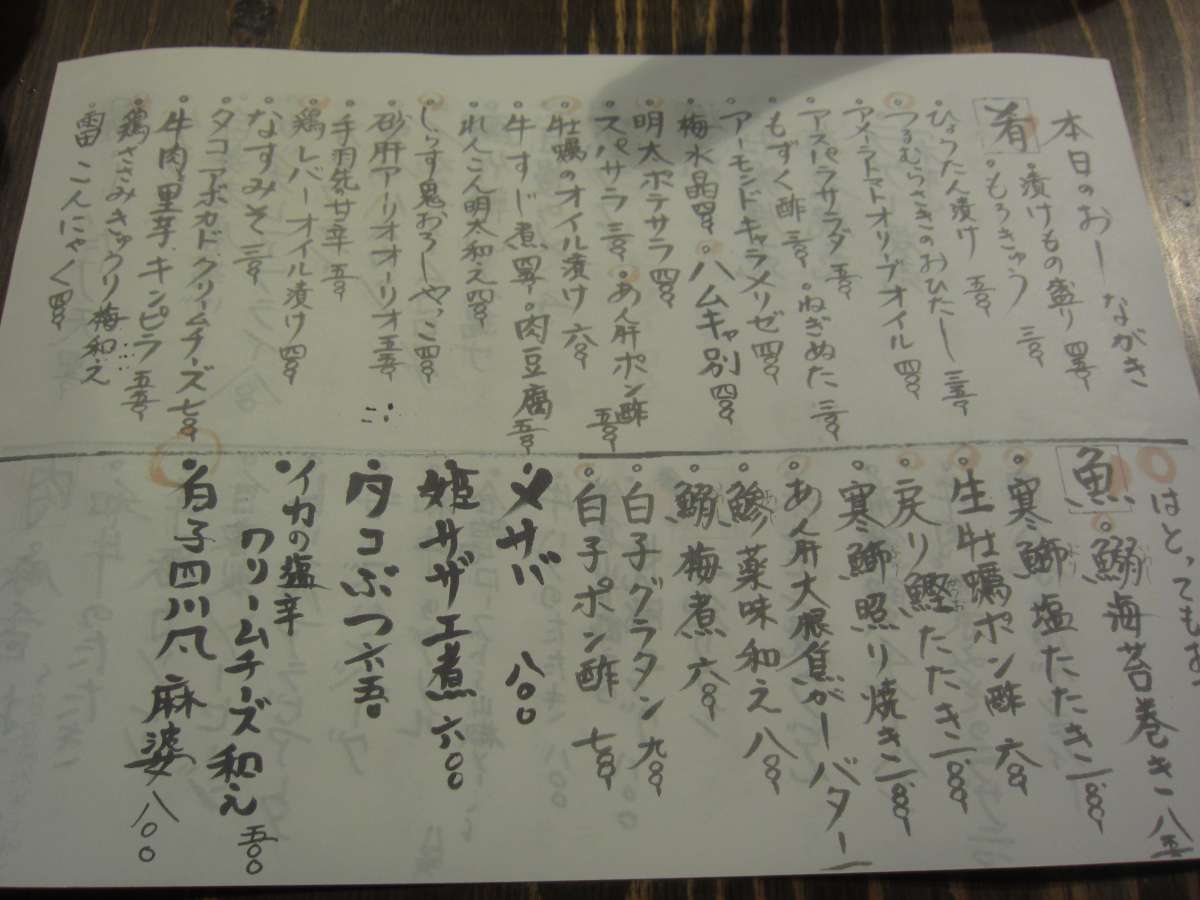 本日のおしながき
肴
・漬けもの盛り 四五〇
・もろきゅう 三〇〇
・ひょうたん漬け 五〇〇
・つるむらさきのおひたし 三五〇
・アイコトマトオリーブオイル 四〇〇
・アスパラサラダ 五〇〇 ・ねぎぬた 三〇〇
・もずく酢 三〇〇
・アーモンドキャラメリゼ 四〇〇
・梅水晶 四〇〇 ・ハムキャ別 四〇〇
・明太ポテサラ 四〇〇
・スパサラ 三〇〇 ・あん肝ポン酢 五〇〇
・牡蠣のオイル漬け 六〇〇
・牛すじ煮 四五〇 ・肉豆腐 五〇〇
・れんこん明太和え 四〇〇
・しらす鬼おろしやっこ 四〇〇
・砂肝アーリオオーリオ 五五〇
・手羽先甘辛 五〇〇
・鶏レバーオイル漬け 四〇〇
・なすみそ 三〇〇
・タコアボカドクリームチーズ 七〇〇
・牛肉、里芋、キンピラ 五五〇
・鶏ささみきゅうり梅和え
・雷こんにゃく 四〇〇
はとってもお
魚
・鰯海苔巻き 八五〇
・寒鰤塩たたき
・生牡蠣ポン酢 六〇〇
・戻り鰹たたき
・寒鰤照り焼き
・あん肝大根焦がしバター
・鯵薬味和え 八〇〇
・鰯梅煮 六〇〇
・白子グラタン 九〇〇
・白子ポン酢 七〇〇
・〆サバ 八〇〇
・姫サザエ煮 六〇〇
・タコぶつ 六五〇
・イカの塩辛
クリームチーズ和え 五〇〇
・白子四川風麻婆 八〇〇